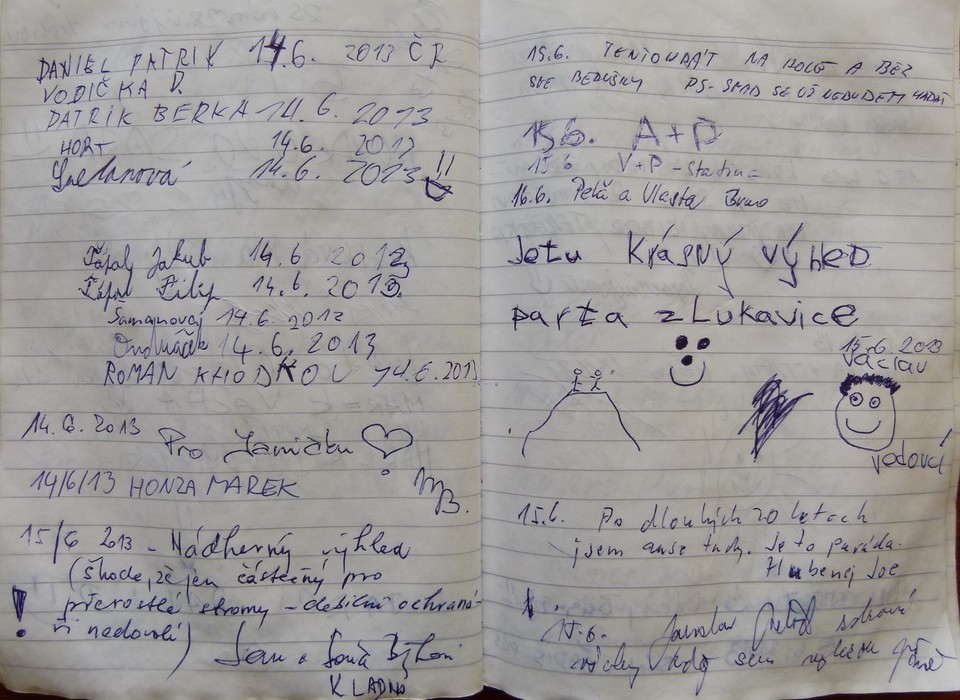 DANIEL PATRIK 14.6. 2013 ČR
VODIČKA D.
PATRIK BERKA 14.6. 2013
HORT 14.6. 2013
14.6. 2013 !!
Jakub 14.6 2013
Filip 14.6. 2013
Šamajnovaj 14.6. 2013
Ondráček 14.6. 2013
ROMAN KHODKOV 14.6.2013
14.6.2013 Pro Janičku
14/6/13 HONZA MAREK MB.
15/6 2013 - Nádherný výhled
(Škoda, že jen částečný pro
přerostlé stromy - debilní ochraná-
ři nedovolí)
Jan a Soňa
KLADNO
15.6. TENTOKRÁT NA KOLE A BEZ
SVÉ BEDUŠKY PS- SNAD SE UŽ NEBUDEM HÁDAT
15.6. A + P
15.6 V+P -
16.6. Petá a Vlasta Brno
Jetu Krásný výHED
parta z Lukavice
15.6 2013
Václav
vedoucí
15.6. Po dlouhých 20 letech
jsem zase tady. Je to paráda.
Hubenej Joe
15.6. Jaroslav zdraví
všechny